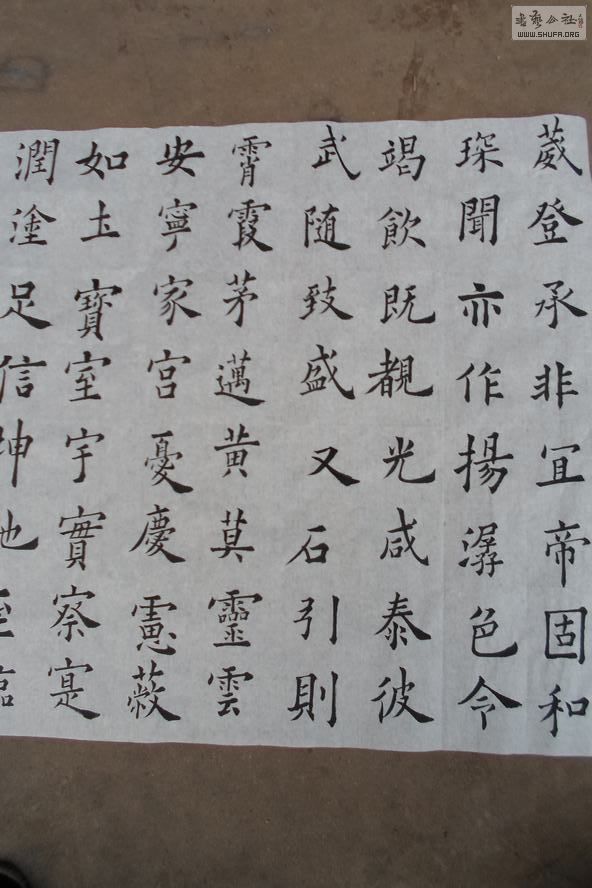 葳登承非冝帝固和
琛聞亦作揚潺色令
竭飲既覩光咸泰彼
武随致盛又石引則
霄霞茅邁黄莫靈雲
安寧家宮憂慶憲蔽
如土寳室宇實察寔
潤塗足信坤地至臨
書藝公社
WWW.SHUFA.ORG